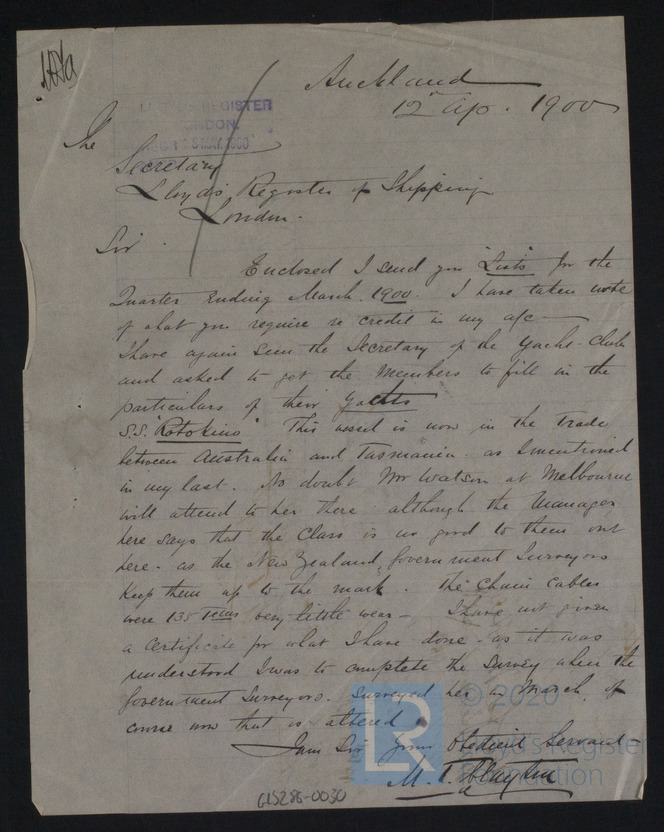 Auckland
12th Ap. 1900
LLOYD'S REGISTER
LONDON.
MAY 1900
The
Secretary
Lloyds Register of Shipping
London.
Sir
Enclosed I send you "Lists" for the
Quarter Ending March. 1900. I have taken note
of what you require re credit in my a/c
I have again seen the Secretary of the Yacht-Club
and asked to get the Members to fill in the
particulars of their Yachts
S.S. "Rotokino" This vessel is now in the trade
between Australia and Tasmania as I mentioned
in my last. No doubt Mr Watson at Melbourne
will attend to her there although the Manager
here says that the Class is no good to them out
here. as the New Zealand Government Surveyors
Keep them up to the mark. The Chain Cables
were 135 very little wear - I have not given
a Certificate for what I have done - as it was
understood I was to complete the Survey when the
Government Surveyors. Surveyed her in March. of
course now that is altered
I am Sir Your Obedient Servant
M. T. Clayton
GLS286-0030
LR
© 2020
Lloyd's Register
Foundation